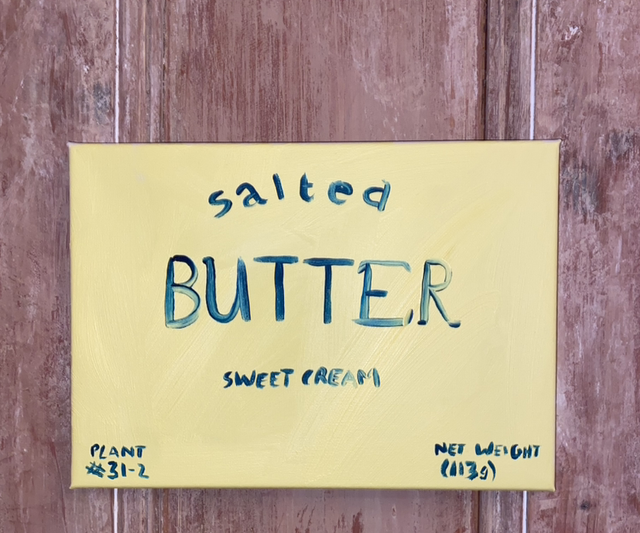 salted
BUTTER
SWEET CREAM
PLANT
#31-2
NET WEIGHT
(113g)